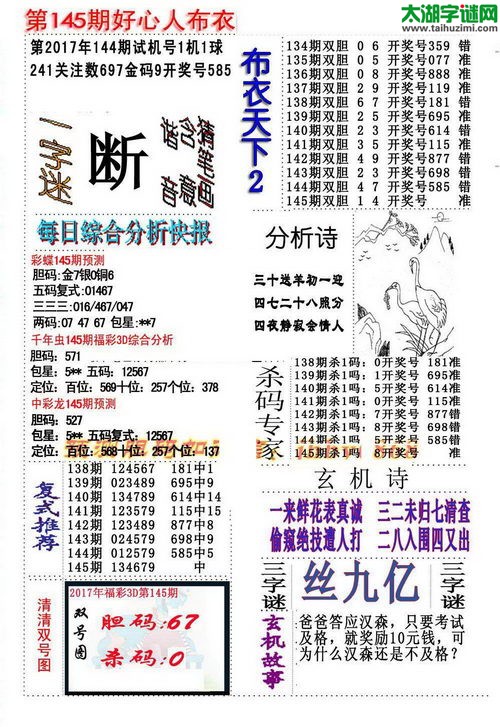 第145期好心人布衣
太湖字谜网
www.taihuzimi.com
第2017年144期试机号1机1球
241关注数697金码9开奖号585
一字迷
断
猜含猪
每日综合分析快报
彩蝶145期预测
胆码:金7银0铜6
五码复式:01467
三三三:016/467/047
两码:07 47 67 包星:**7
千年虫145期福彩3D综合分析
胆码: 571
包星: 5** 五码: 12567
定位: 百位: 569十位: 257个位: 378
中彩龙145期预测
胆码: 527
包星: 5** 五码复式: 12567
定位: 百位: 568十位: 257个位: 137
复式推荐
138期 124567 181中1
139期 023489 695中9
140期 134789 614中14
141期 123579 115中15
142期 123489 877中8
143期 034569 698中69
144期 012579 585中5
145期 134679 中
清清双号图
2017年福彩3D第145期
双号图
胆码:67
杀码:0
布衣天下2
134期双胆 0 6 开奖号359 错
135期双胆 0 5 开奖号077 准
136期双胆 0 8 开奖号888 准
137期双胆 2 9 开奖号119 准
138期双胆 6 7 开奖号181 错
139期双胆 2 5 开奖号695 准
140期双胆 2 3 开奖号614 错
141期双胆 3 5 开奖号115 准
142期双胆 4 9 开奖号877 错
143期双胆 2 3 开奖号698 错
144期双胆 4 7 开奖号585 错
145期双胆 1 4 开奖号 准
分析诗
三十送羊初一迎
四七二十八照分
四夜静寂会情人
杀码专家
138期杀1码: 0开奖号 181准
139期杀1吗: 1开奖号 695准
140期杀1吗: 5开奖号 614准
141期杀1吗: 7开奖号 115准
142期杀1吗: 8开奖号 877错
143期杀1吗: 8开奖号 698错
144期杀1吗: 8开奖号 585错
145期杀1吗: 8开奖号 准
玄机诗
一来鲜花表真诚 三二未归七清查
偷窥绝技遭人打 二八入围四又出
三字谜
丝九亿
三字谜
玄机故事
爸爸答应汉森，只要考试
及格，就奖励10元钱，可
为什么汉森还是不及格？